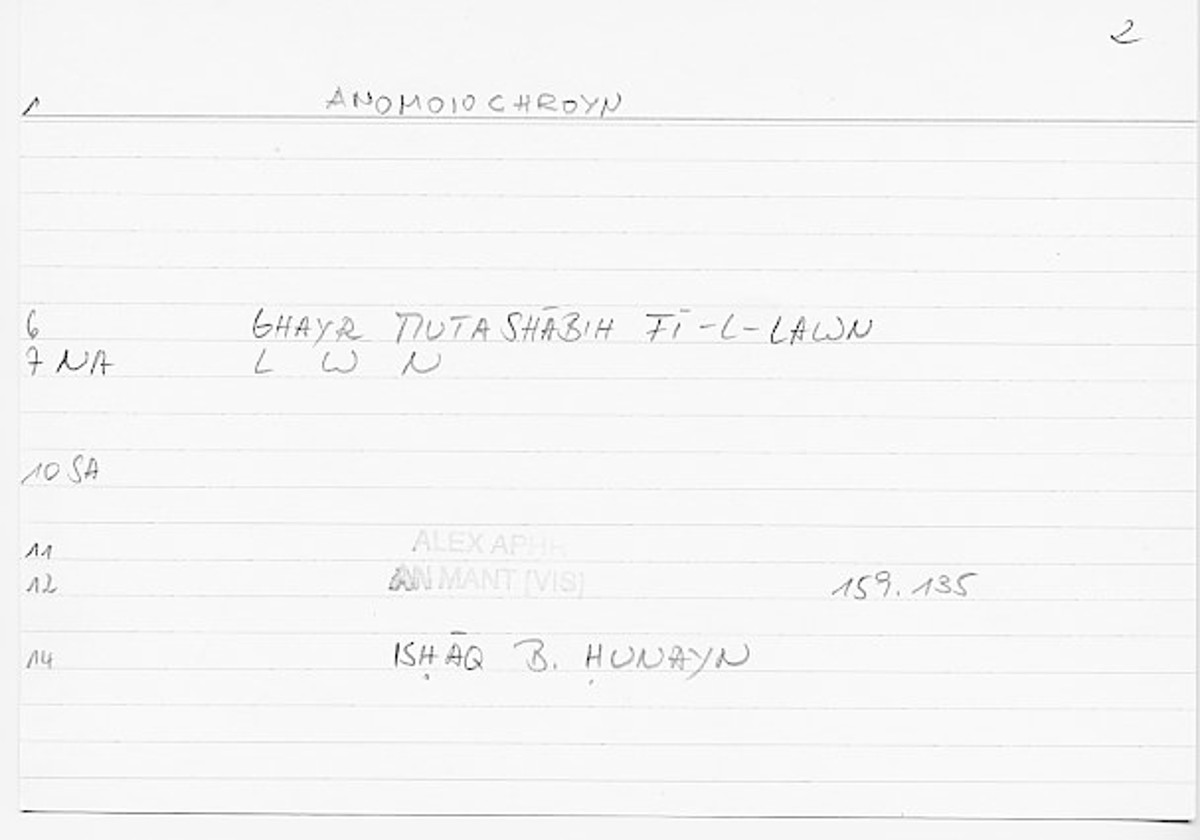 2
1 ANOMOIOCHROYN
6 GHAYR MUTASHĀBIH FĪ-L-LAWN
7 NA L W N
10 SA
11 ALEX APHR
12 AN MANT [VIS] 159.135
14 ISḤĀQ B. ḤUNAYN